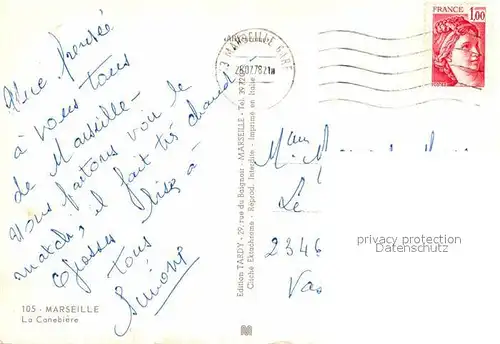 Une pensée
à vous tous
de Marseille -
Nous partons voir le
match, il fait très chaud
Grosses bises à
tous
Simone
105 - MARSEILLE
La Canebière
Edition TARDY - 29, rue du Baignoir - MARSEILLE - Tél. 39.72
Cliché Ektachrome - Reprod. Interdite - Imprimé en Italie
MARSEILLE GARE
FRANCE
1,00
2346
privacy protection
Datenschutz